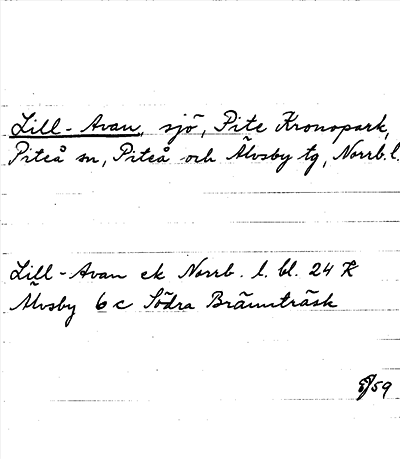 Lill-Avan, sjö, Pite Kronopark,
Piteå sn, Piteå och Älvsby tg, Norrb. l.
Lill-Avan ek Norrb. l. bl. 24 K
Älvsby 6 c Södra Brännträsk
59